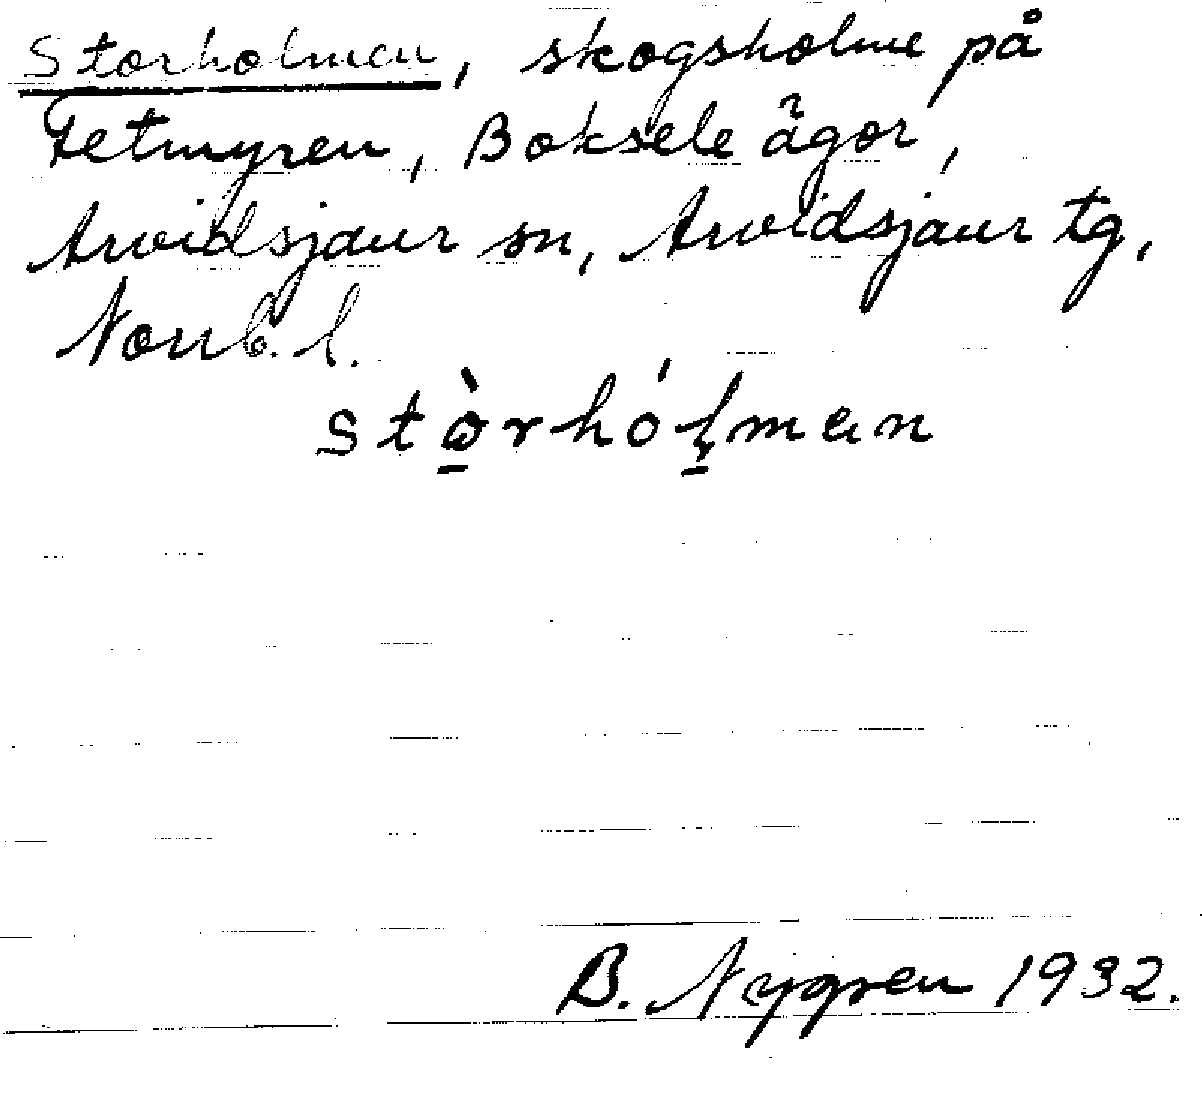 Storholmen, skogsholme på
Fetmyren, Boksele ägor,
Arvidsjaur sn, Arvidsjaur tg,
Norrb. l.
stòrhólmen
B. Nygren 1932.